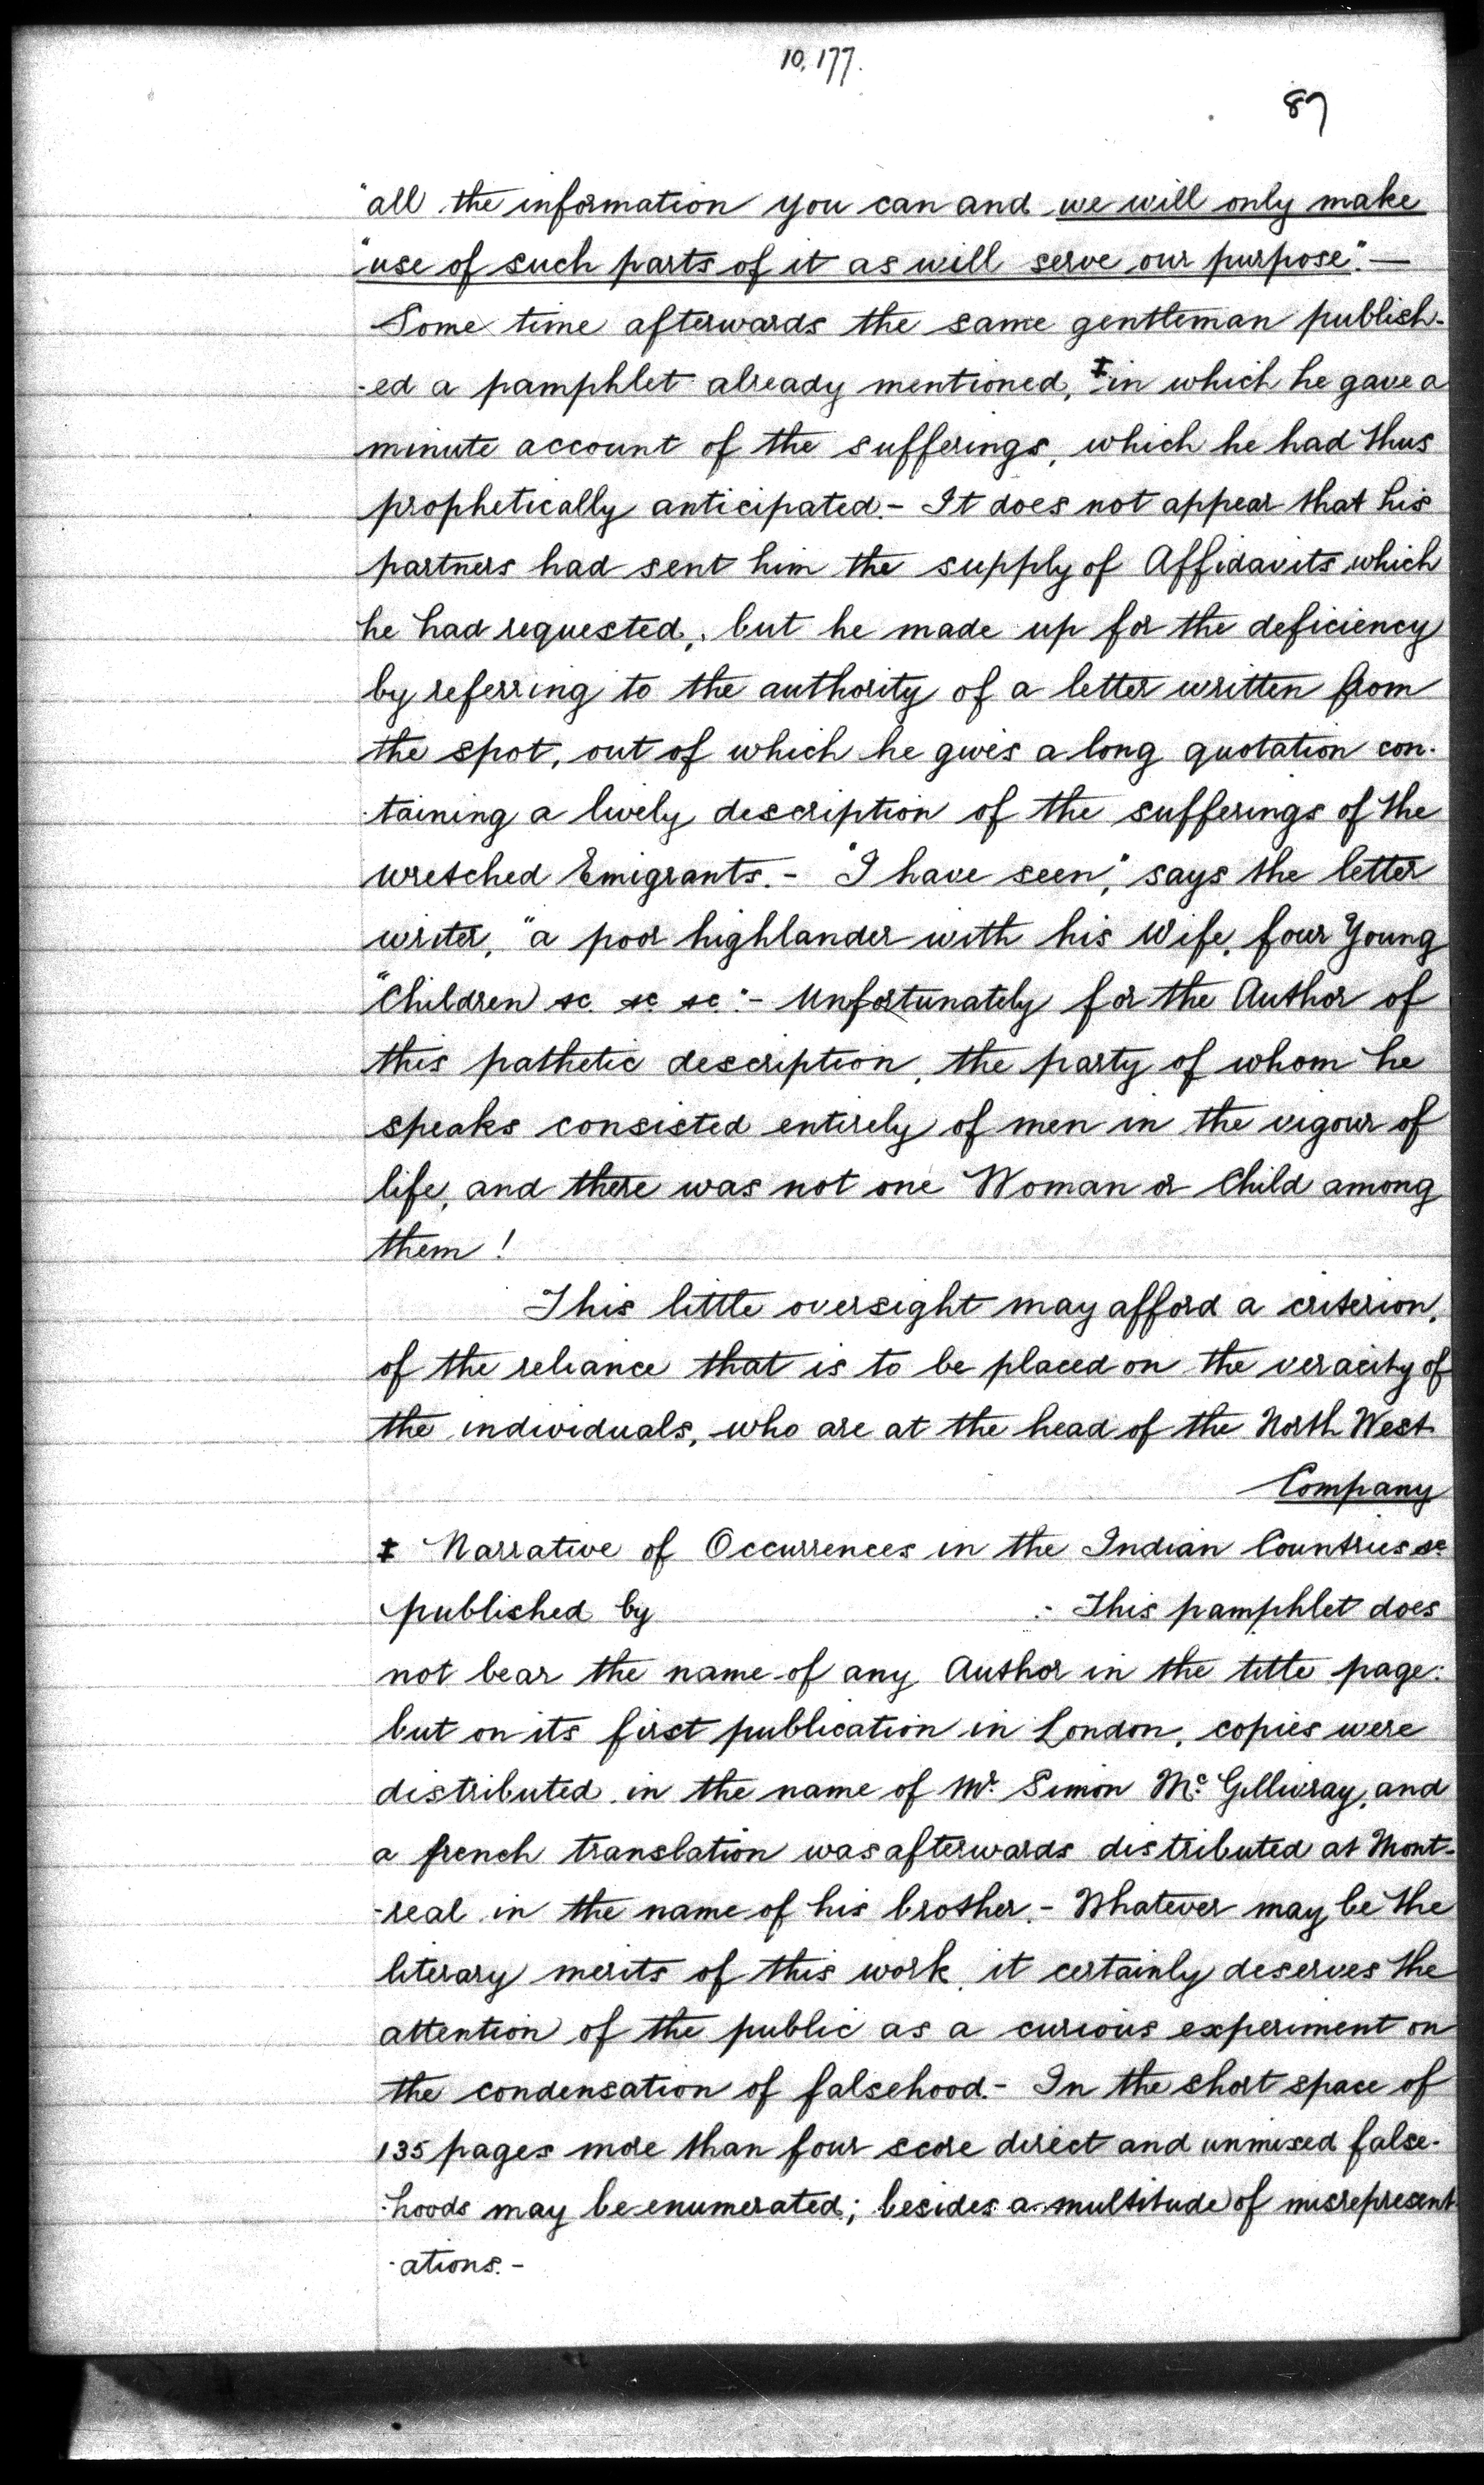 10,177.
87
"all the information you can and we will only make
"use of such parts of it as will serve our purpose".—
Some time afterwards the same gentleman publish-
-ed a pamphlet already mentioned, ‡ in which he gave a
minute account of the sufferings, which he had thus
prophetically anticipated.- It does not appear that his
partners had sent him the supply of Affidavits which
he had requested, but he made up for the deficiency
by referring to the authority of a letter written from
the spot, out of which he gives a long quotation con-
-taining a lively description of the sufferings of the
wretched Emigrants.- "I have seen," says the letter
writer, "a poor highlander with his Wife, four Young
"Children &c. &c. &c."- Unfortunately for the Author of
this pathetic description, the party of whom he
speaks consisted entirely of men in the vigour of
life, and there was not one Woman or Child among
them!
This little oversight may afford a criterion,
of the reliance that is to be placed on the veracity of
the individuals, who are at the head of the North West
Company
‡ Narrative of Occurrences in the Indian Countries &c
published by .- This pamphlet does
not bear the name of any Author in the title page:
but on its first publication in London, copies were
distributed in the name of Mr. Simon Mc. Gillivray, and
a french translation was afterwards distributed at Mont-
-real in the name of his brother.- Whatever may be the
literary merits of this work, it certainly deserves the
attention of the public as a curious experiment on
the condensation of falsehood.- In the short space of
135 pages more than four score direct and unmixed false-
-hoods may be enumerated; besides a multitude of misrepresent-
-ations.-